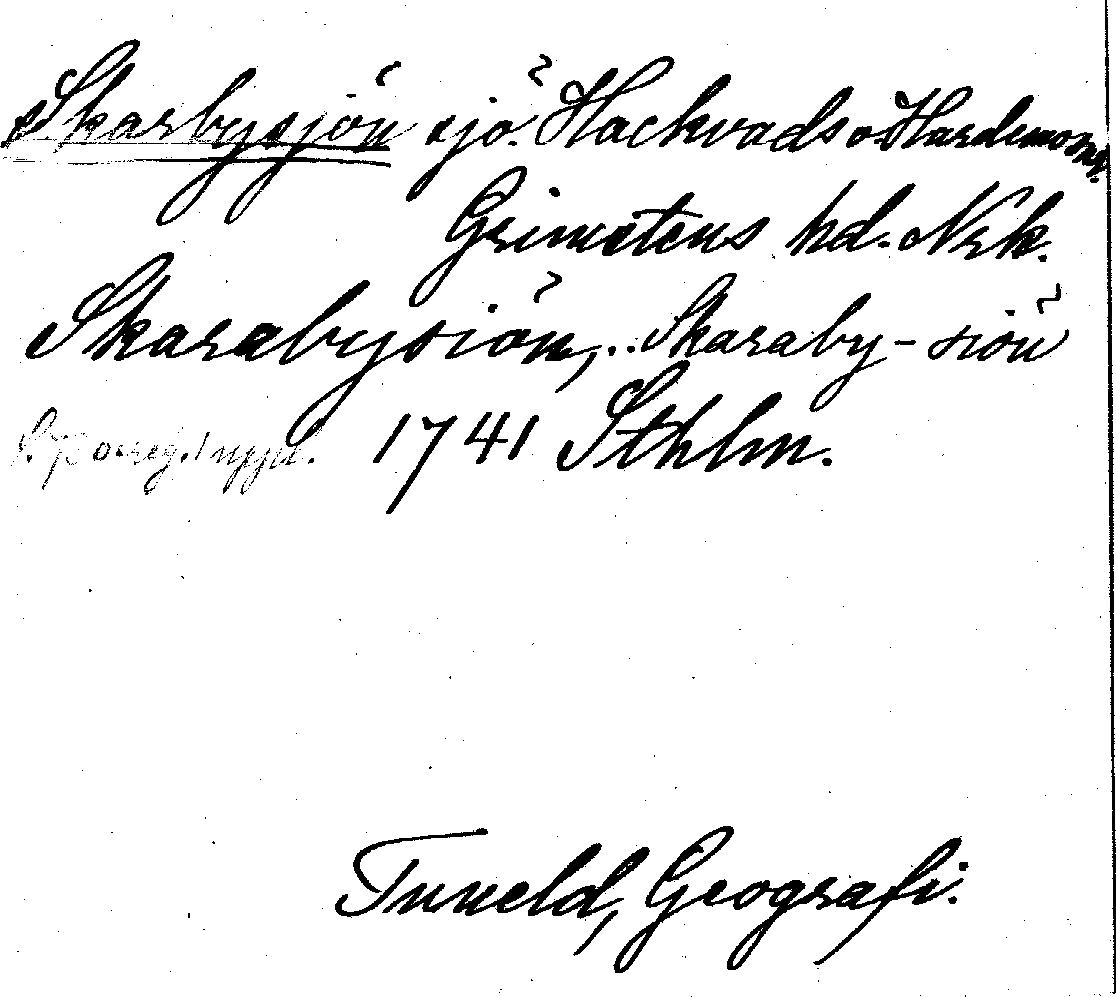 Skarbysjön sjö. Hackvads o Hardemo snr.
Grimstens hd. Nrk.
Skarabysiön, .. Skaraby-siön
1741 Sthlm.
Tuneld, Geografi.